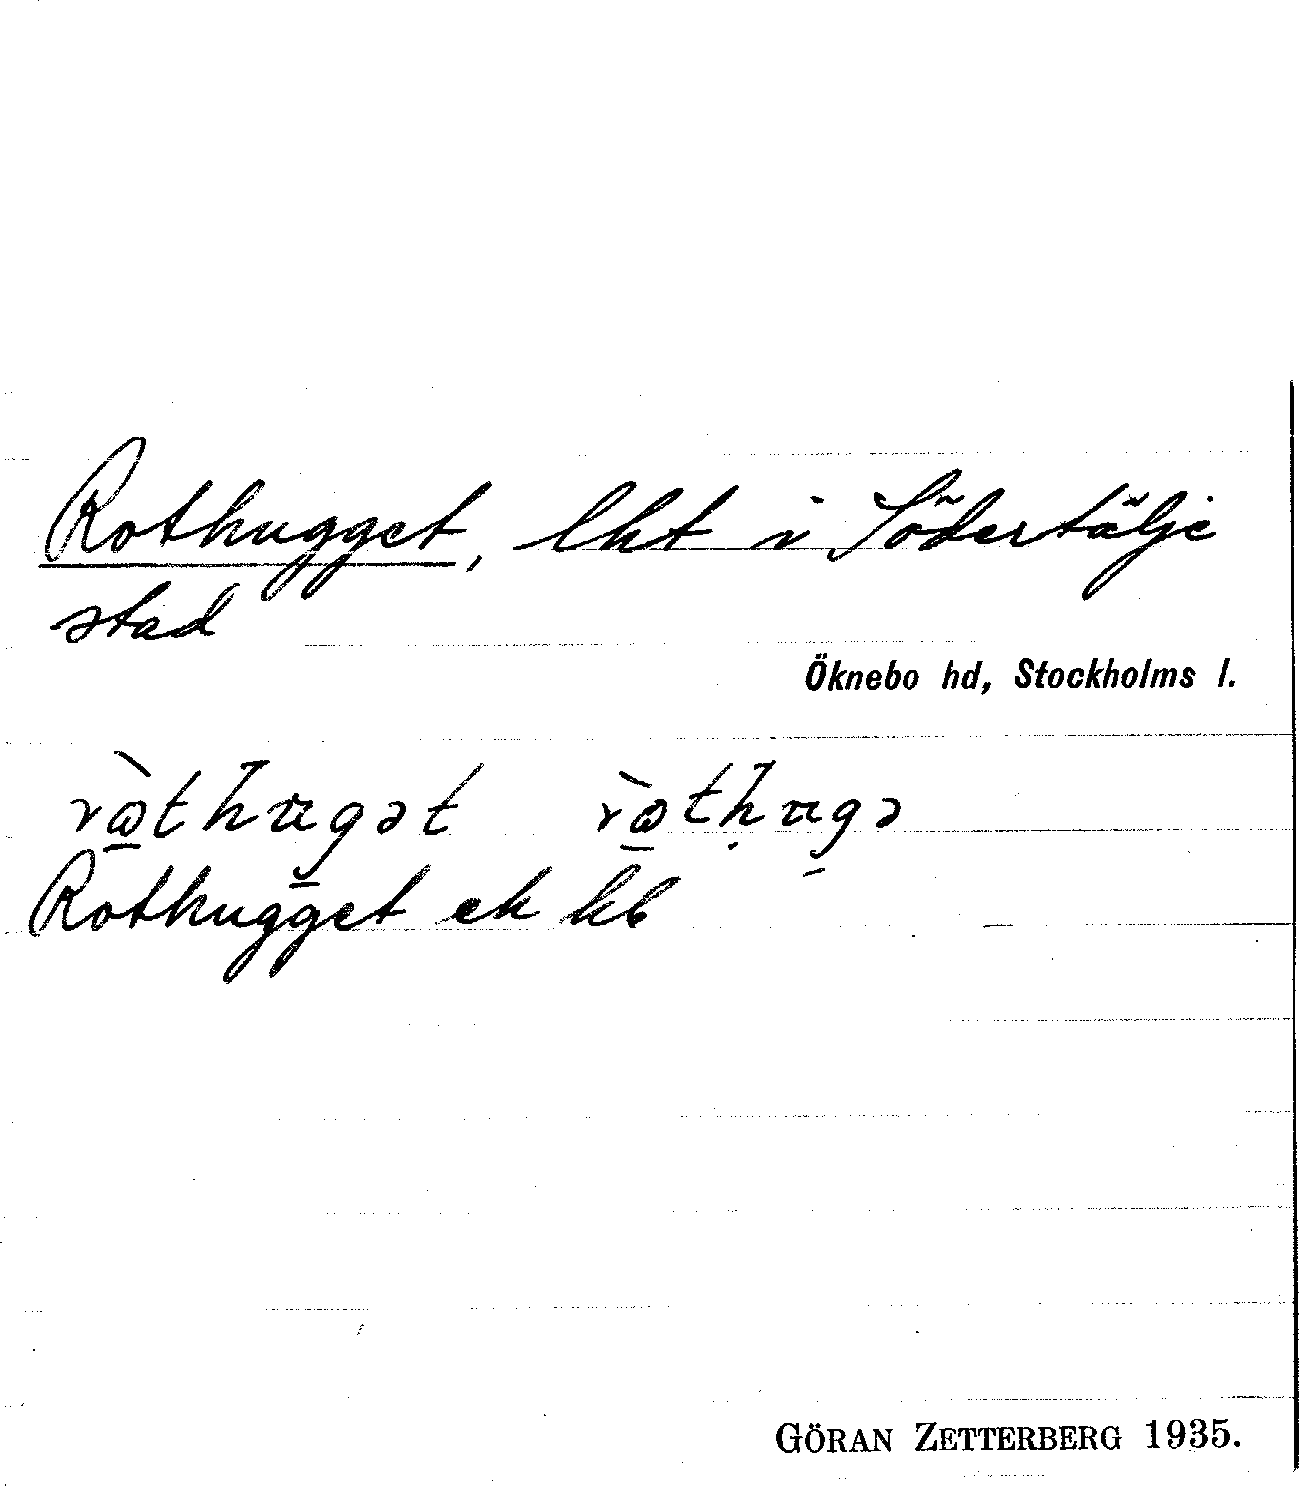 Rothugget, lht i Södertälje
stad
Öknebo hd, Stockholms l.
Rothugget ek kb
GÖRAN ZETTERBERG 1935.